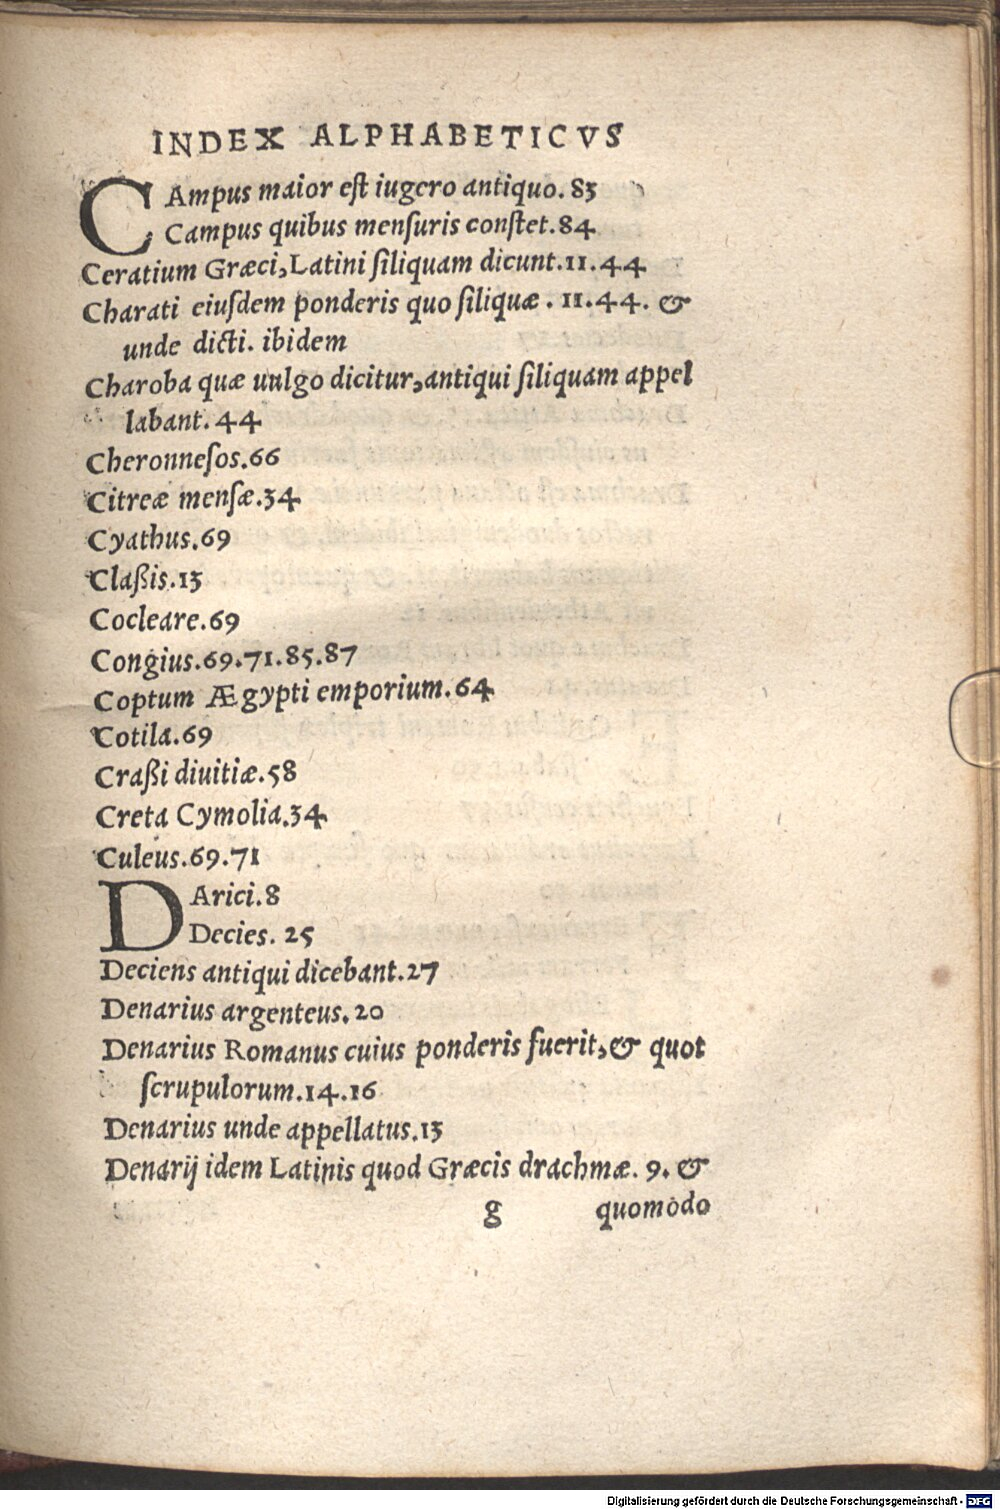 INDEX ALPHABETICVS
CAmpus maior eſt iugero antiquo. 83
Campus quibus menſuris conſtet. 84
Ceratium Græci, Latini ſiliquam dicunt. 11. 44
Charati eiuſdem ponderis quo ſiliquæ. 11. 44. &
unde dicti. ibidem
Charoba quæ uulgo dicitur, antiqui ſiliquam appel
labant. 44
Cheronneſos. 66
Citreæ menſæ. 34
Cyathus. 69
Claßis. 13
Cocleare. 69
Congius. 69. 71. 85. 87
Coptum Ægypti emporium. 64
Cotila. 69
Craßi diuitiæ. 58
Creta Cymolia. 34
Culeus. 69. 71
DArici. 8
Decies. 25
Deciens antiqui dicebant. 27
Denarius argenteus. 20
Denarius Romanus cuius ponderis fuerit, & quot
ſcrupulorum. 14. 16
Denarius unde appellatus. 13
Denarij idem Latinis quod Græcis drachmæ. 9. &
g quomodo
Digitalisierung gefördert durch die Deutsche Forschungsgemeinschaft - DFG